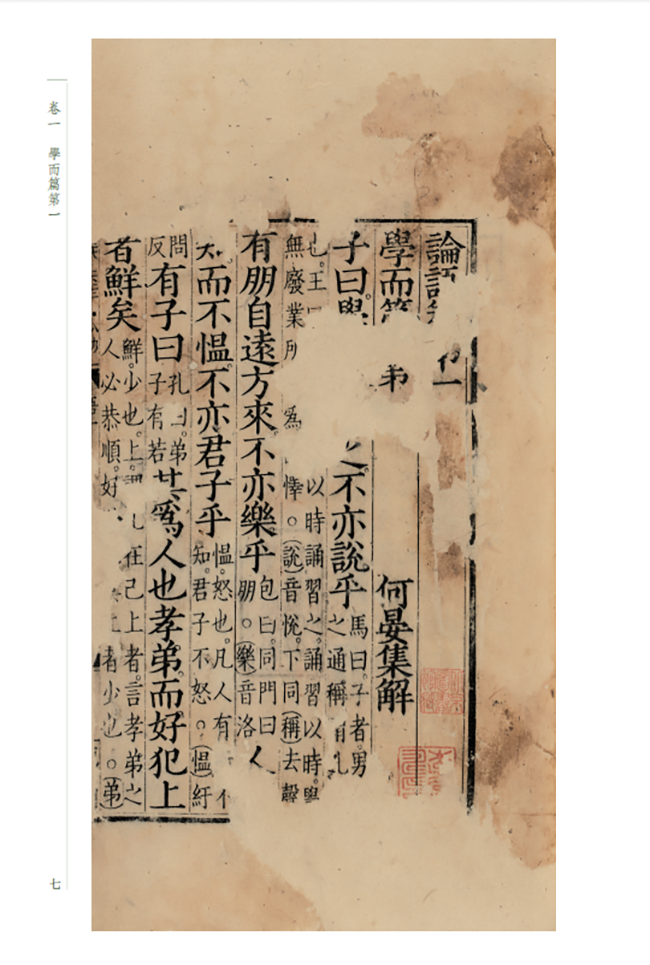 論語 一
學而 弟 何晏集解
子曰學 不亦說乎 馬曰子者男
之通稱
也王 以時誦習之誦習以時學
無廢業所 為 懌○說音悅下同稱去聲
有朋自遠方來不亦樂乎 包曰同門曰
朋○樂音洛 人
而不慍不亦君子乎 慍怒也凡人有 不
知君子不怒○慍紆
問
反
有子曰 孔曰弟
子有若
其爲人也孝弟而好犯上
者鮮矣 鮮少也上 在己上者言孝弟之
人必恭順好 者少也○弟
卷一 學而篇第一
七